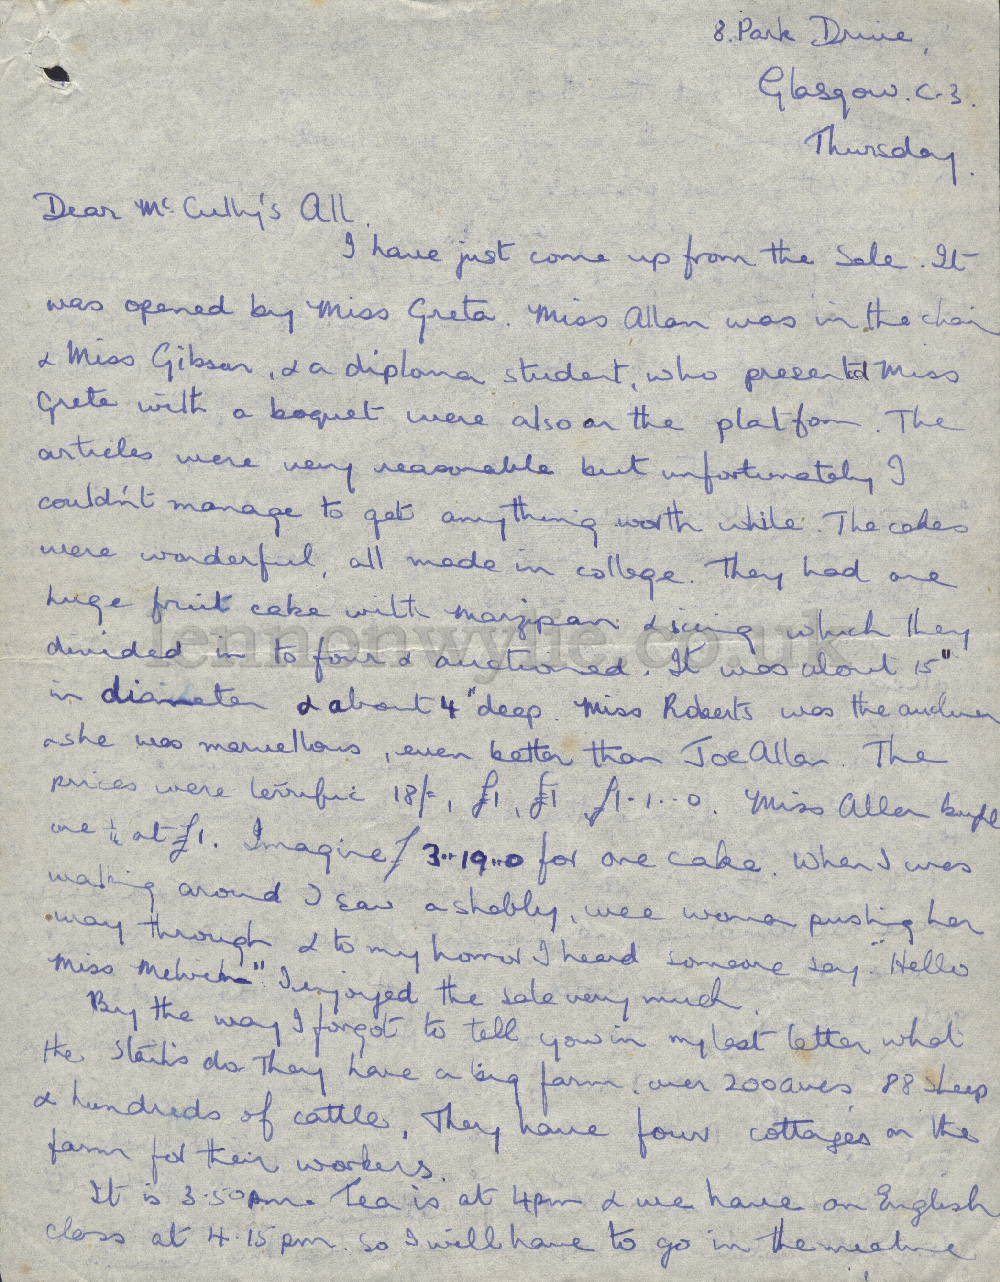 8. Park Drive,
Glasgow. C.3.
Thursday.
Dear Mc Cully's All.
I have just come up from the Sale. It
was opened by Miss Greta. Miss Allan was in the chair
& Miss Gibson, & a diploma student, who presented Miss
Greta with a boquet were also on the platform. The
articles were very reasonable but unfortunately I
couldn't manage to get anything worth while. The cakes
were wonderful, all made in college. They had one
huge fruit cake with marzipan & icing which they
lennonwylie.co.uk
divided in to four & auctioned. It was about 15"
in diameter & about 4" deep. Miss Roberts was the
& she was marvellous, even better than Joe Allan. The
prices were terrific 18/-, £1, £1, £1-1-0. Miss Allan bought
one ¼ at £1. Imagine £3-19-0 for one cake. When I was
walking around I saw a shabby, wee woman pushing her
way through & to my horror I heard someone say "Hello
Miss " I enjoyed the sale very much.
By the way I forgot to tell you in my last letter what
the do. They have a big farm, over 200 acres, 88 sheep
& hundreds of cattle. They have four cottages on the
farm for their workers.
It is 3.50pm. Tea is at 4pm & we have an English
class at 4.15pm. so I will have to go in the meantime